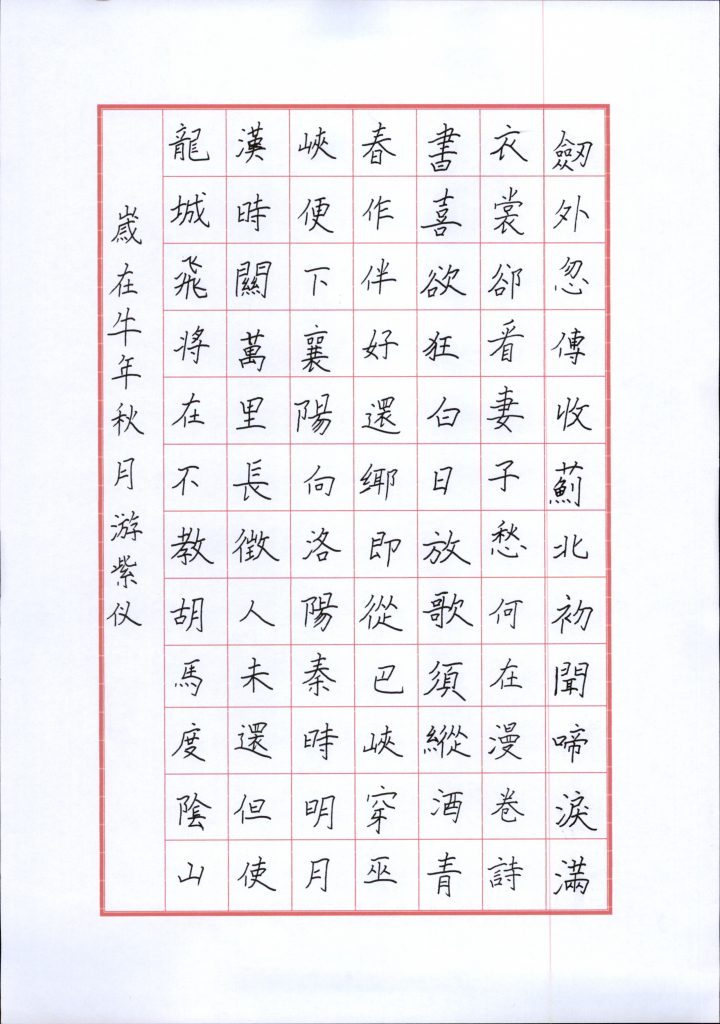 劒外忽傳收薊北初聞啼淚滿
衣裳卻看妻子愁何在漫卷詩
書喜欲狂白日放歌須縱酒青
春作伴好還鄉即從巴峽穿巫
峽便下襄陽向洛陽秦時明月
漢時關萬里長徵人未還但使
龍城飛将在不教胡馬度陰山
歲在牛年秋月游紫仪